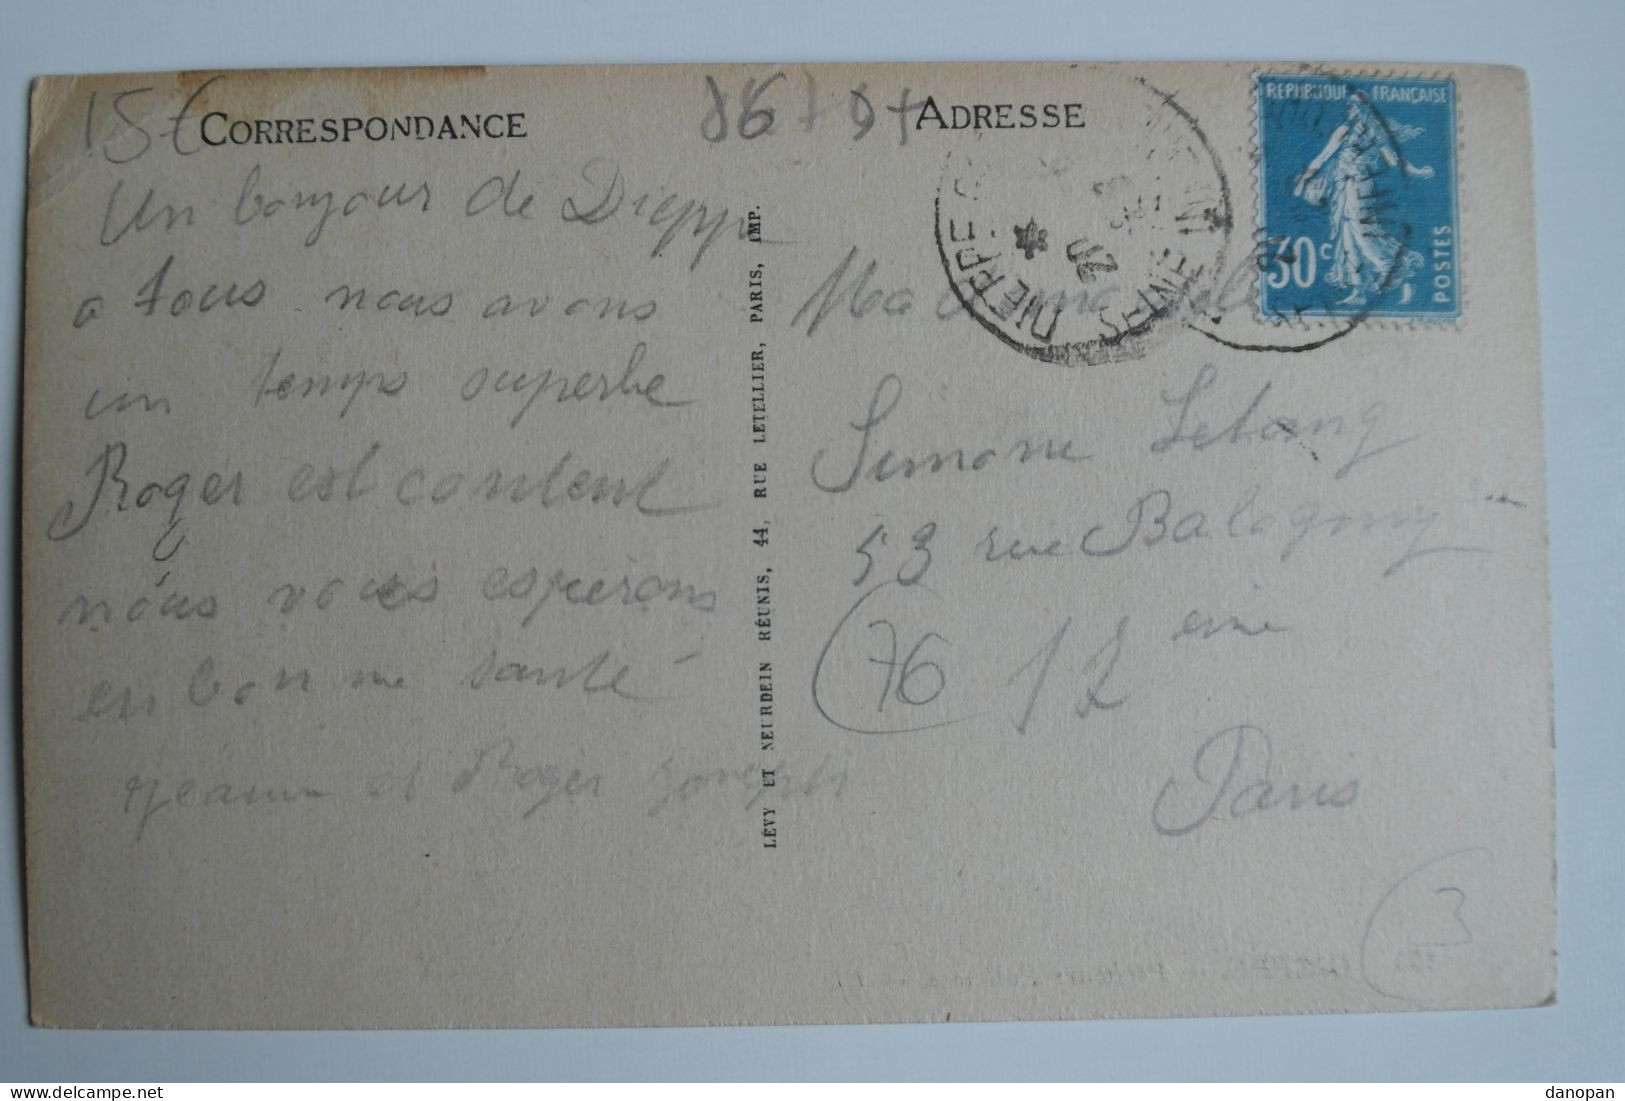 15€
CORRESPONDANCE
Un bonjour de Dieppe
a tous nous avons
un temps superbe
Roger est content
nous vous espérons
en bonne santé
Jeanne et Roger Joseph
LÉVY ET NEURDEIN RÉUNIS, 44, RUE LETELLIER, PARIS, IMP.
ADRESSE
REPUBLIQUE FRANÇAISE
30c
POSTES
DIEPPE
SEINE INFRE
20
Mademoiselle
Simone Lelong
53 rue Balagny
12 eme
Paris
76
3
danopan